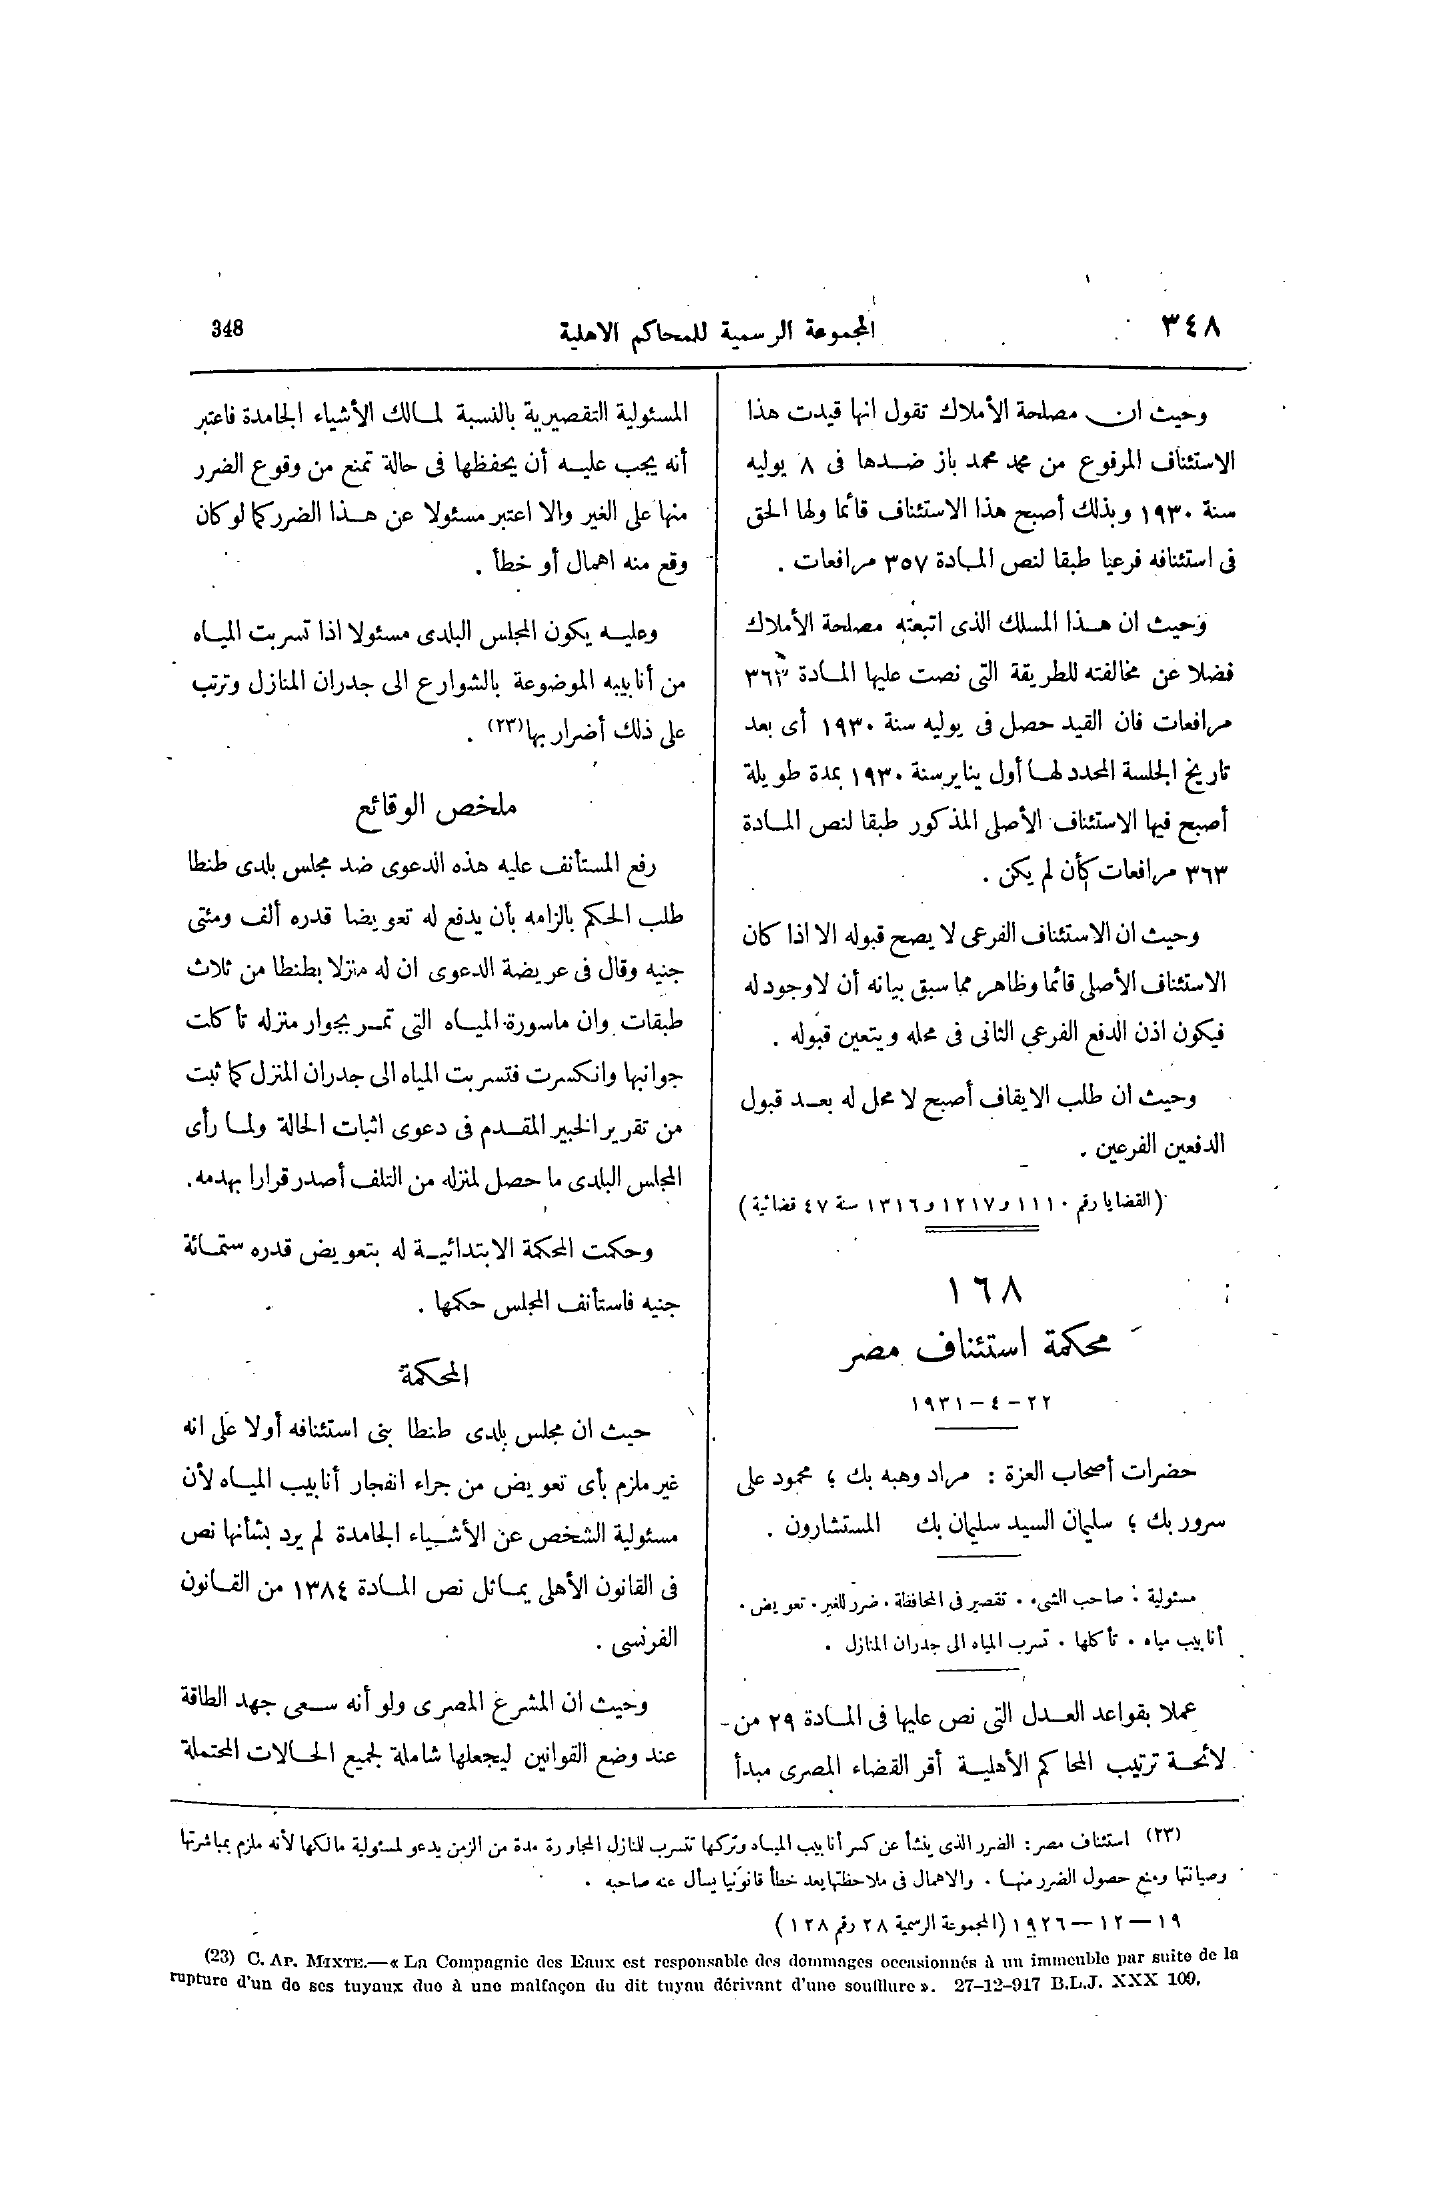 ٣٤٨
المجموعة الرسمية للمحاكم الاهلية
348
وحيث ان مصلحة الأملاك تقول انها قيدت هذا
الاستئناف المرفوع من محمد محمد باز ضدها فى ٨ يوليه
سنة ١٩٣٠ وبذلك أصبح هذا الاستئناف قائما ولها الحق
فى استئنافه فرعيا طبقا لنص المادة ٣٥٧ مرافعات .
وحيث ان هذا المسلك الذى اتبعته مصلحة الأملاك
فضلا عن مخالفته للطريقة التى نصت عليها المادة ٣٦٣
مرافعات فان القيد حصل فى يوليه سنة ١٩٣٠ أى بعد
تاريخ الجلسة المحدد لها أول يناير سنة ١٩٣٠ بمدة طويلة
أصبح فيها الاستئناف الأصلى المذكور طبقا لنص المادة
٣٦٣ مرافعات كأن لم يكن .
وحيث ان الاستئناف الفرعى لا يصح قبوله الا اذا كان
الاستئناف الأصلى قائما وظاهر مما سبق بيانه أن لاوجود له
فيكون اذن الدفع الفرعى الثانى فى محله ويتعين قبوله .
وحيث ان طلب الايقاف أصبح لا محل له بعد قبول
الدفعين الفرعين .
(القضايا رقم ١١١٠ و١٢١٧ و١٣١٦ سنة ٤٧ قضائية)
١٦٨
محكمة استئناف مصر
٢٢ – ٤ – ١٩٣١
حضرات أصحاب العزة : مراد وهبه بك ؛ محمود على
سرور بك ؛ سليمان السيد سليمان بك المستشارون .
مسئولية : صاحب الشىء . تقصير فى المحافظة . ضرر للغير . تعويض .
أنابيب مياه . تأكلها . تسرب المياه الى جدران المنازل .
عملا بقواعد العدل التى نص عليها فى المادة ٢٩ من
لائحة ترتيب المحاكم الأهلية أقر القضاء المصرى مبدأ
المسئولية التقصيرية بالنسبة لمالك الأشياء الجامدة فاعتبر
أنه يجب عليه أن يحفظها فى حالة تمنع من وقوع الضرر
منها على الغير والا اعتبر مسئولا عن هذا الضرر كما لو كان
وقع منه اهمال أو خطأ .
وعليه يكون المجلس البلدى مسئولا اذا تسربت المياه
من أنابيبه الموضوعة بالشوارع الى جدران المنازل وترتب
على ذلك أضرار بها(٢٣) .
ملخص الوقائع
رفع المستأنف عليه هذه الدعوى ضد مجلس بلدى طنطا
طلب الحكم بالزامه بأن يدفع له تعويضا قدره ألف ومئتى
جنيه وقال فى عريضة الدعوى ان له منزلا بطنطا من ثلاث
طبقات وان ماسورة المياه التى تمر بجوار منزله تأكلت
جوانبها وانكسرت فتسربت المياه الى جدران المنزل كما ثبت
من تقرير الخبير المقدم فى دعوى اثبات الحالة ولما رأى
المجلس البلدى ما حصل لمنزله من التلف أصدر قرارا بهدمه.
وحكمت المحكمة الابتدائية له بتعويض قدره ستمائة
جنيه فاستأنف المجلس حكمها .
المحكمة
حيث ان مجلس بلدى طنطا بنى استئنافه أولا على انه
غير ملزم بأى تعويض من جراء انفجار أنابيب المياه لأن
مسئولية الشخص عن الأشياء الجامدة لم يرد بشأنها نص
فى القانون الأهلى يماثل نص المادة ١٣٨٤ من القانون
الفرنسى .
وحيث ان المشرع المصرى ولو أنه سعى جهد الطاقة
عند وضع القوانين ليجعلها شاملة لجميع الحالات المحتملة
(٢٣) استئناف مصر: الضرر الذى ينشأ عن كسر أنابيب المياه وتركها تتسرب للنازل المجاورة مدة من الزمن يدعو لمسئولية مالكها لأنه ملزم بمباشرتها
وصيانتها ومنع حصول الضرر منها . والاهمال فى ملاحظتها يعد خطأ قانونيا يسأل عنه صاحبه .
١٩ – ١٢ – ١٩٢٦ (المجموعة الرسمية ٢٨ رقم ١٢٨)
(23) C. AP. MIXTE.—« La Compagnie des Eaux est responsable des dommages occasionnés à un immeuble par suite de la
rupture d'un de ses tuyaux due à une malfaçon du dit tuyau dérivant d'une soufflure ». 27–12–917 B.L.J. XXX 109.